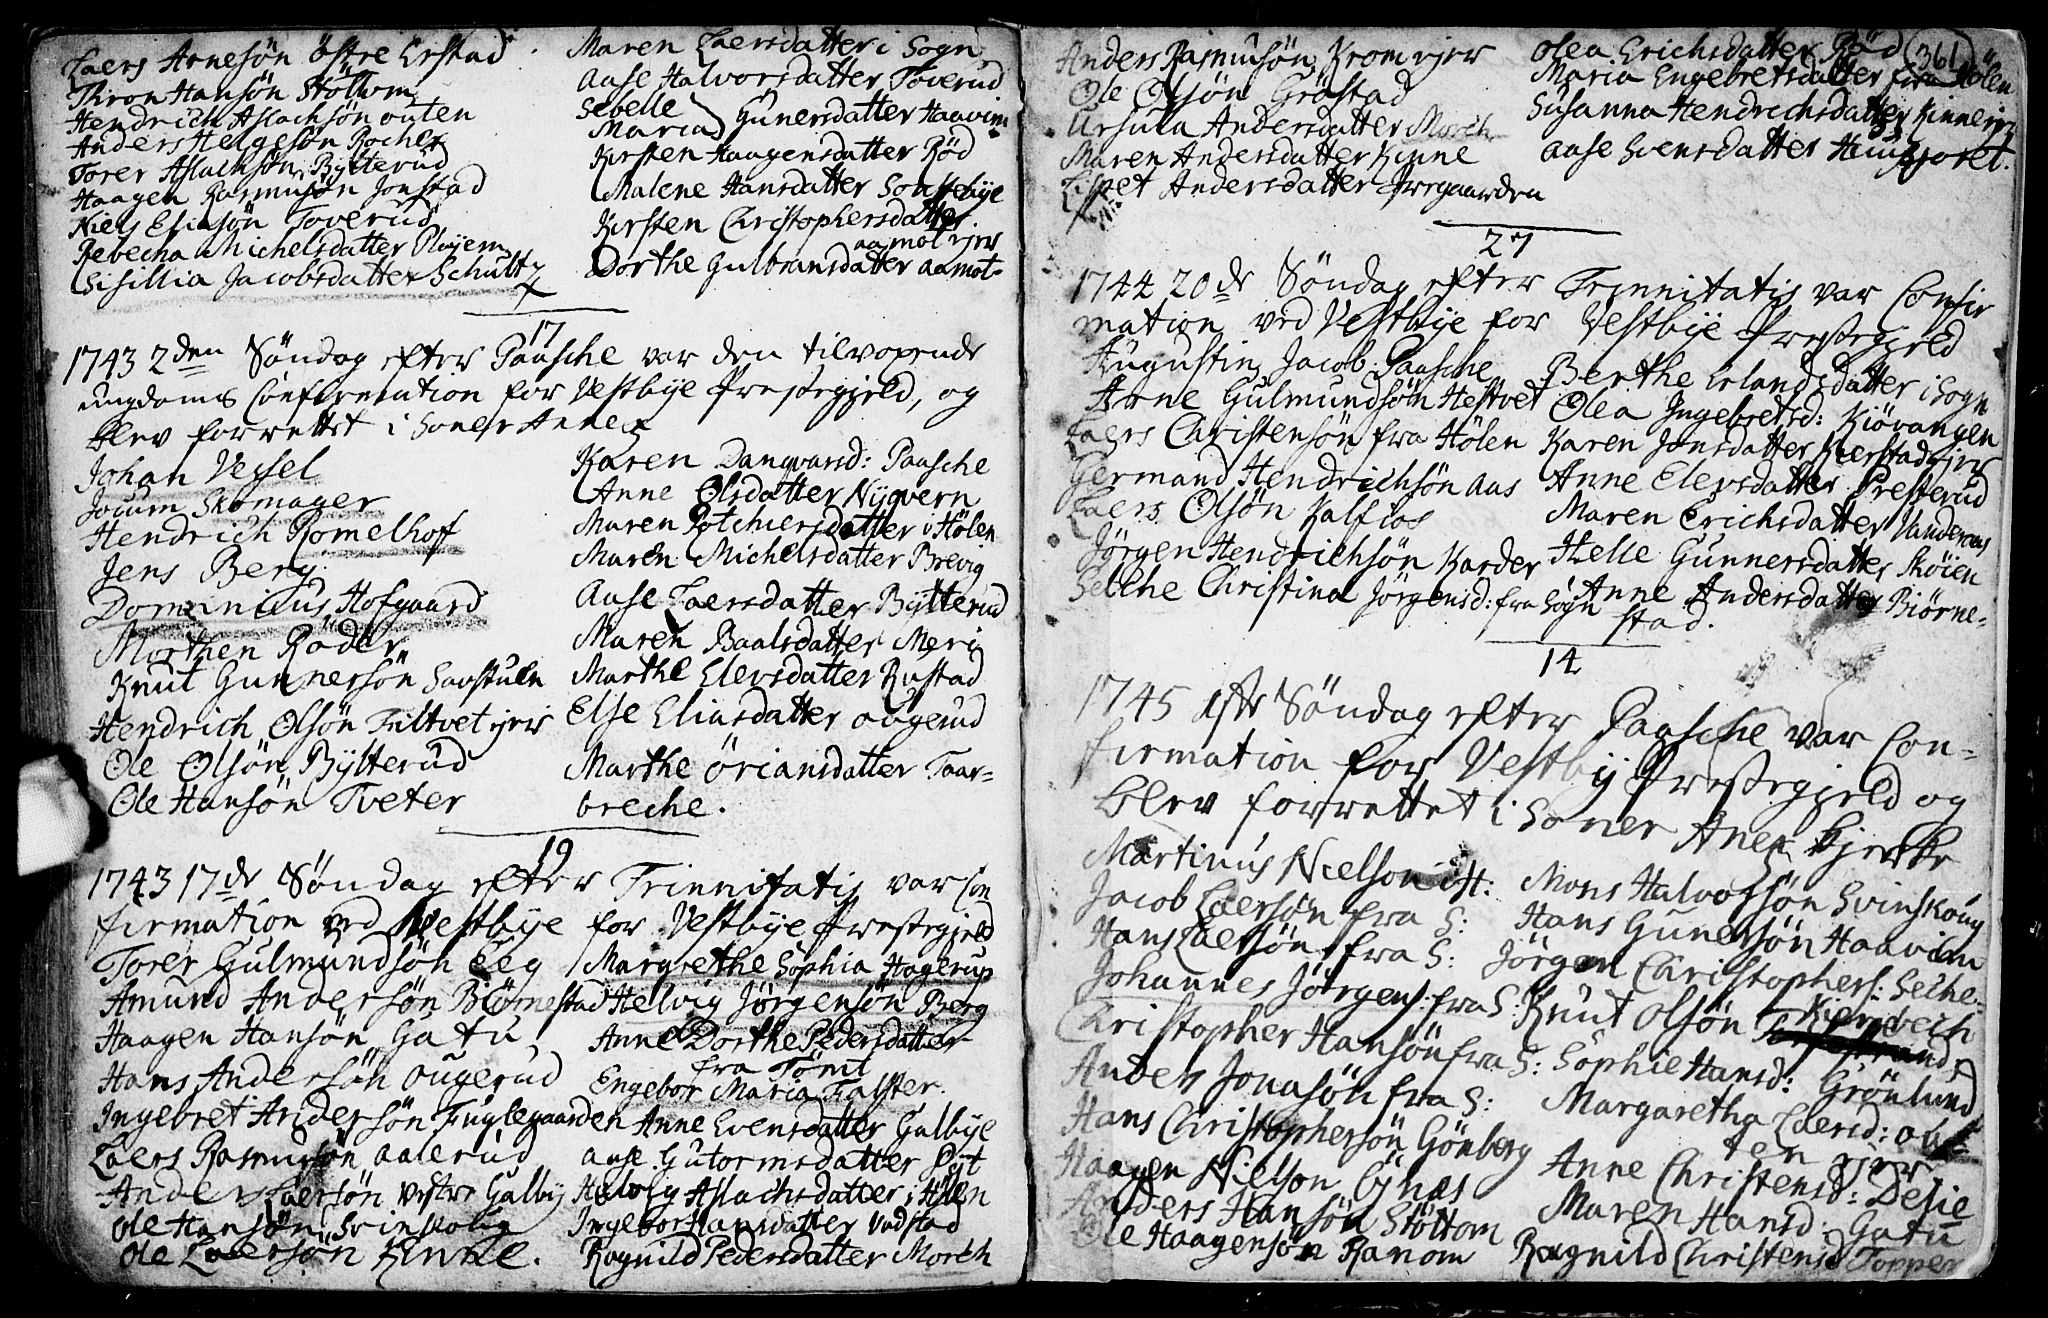 Laers Arnesön östre Erstad
Thron Hansön Stöltum
Hendrich Aslachsön outen
Anders Helgesön Rocher
Torer Aslachsön Bÿlterud
Haagen Rasmusön Jonstad
Niels Eliasön Toverud
Rebecha Michelsdatter Pløÿem
Sisillia Jacobsdatter Schultz
Maren Laersdatter i Sogn
Aase Halvorsdatter Toverud
Sebelle
Maria Gunersdatter Haavim
Kirsten Haagensdatter Röd
Malene Hansdatter Sonssebÿe
Kirsten Christophersdatter
aamot ijer
Dorthe Gulbransdatter aamot
17
1743 2den Söndag efter Paasche var den tilvoxende
ungdoms Confirmation for Vestbÿe Præstegjeld, og
blev forrettet i Soner Annex
Johan Vessel
Jocum Skomager
Hendrich Romelhoff
Jens Berg
Dominicus Hofgaard
Morthen Röder
Knut Gunnersön Saastuen
Hendrich Olsön Filtvet ijer
Ole Olsön Bÿlterud
Ole Hansön Tveter
Karen Danqvarsd: Paasche
Anne Olsdatter Nÿqvern
Maren Potchiersdatter i Hölen
Maren Michelsdatter Brevig
Aase Laersdatter Bÿlterud
Maren Baalsdatter Meri
Marthe Elevsdatter Rustad
Else Eliasdatter ougerud
Marthe öriansdatter Taar-
breche.
19
1743 17de Söndag efter Trinnitatis var Con
firmation ved Vestbÿe for Vestbÿe Præstegjeld
Torer Gulmundsön Eeg
Amund Andersön Biörnestad
Haagen Hansön Gatu
Hans Andersön ougerud
Ingebret Andersön Fuglegaarden
Laers Rasmusön aalerud
Anders Laersön vestre Galbÿ
Ole Hansön Svinskoug
Ole Laersön Kinne.
Margrethe Sophia Hagerup
Helvig Jörgensön Berg
Anne Dorthe Pedersdatter
fra Tömt
Engebor Maria Falster.
Anne Evensdatter Galbÿe
Aase Gutormsdatter
Helvig Aslachsdatter i Hölen
Ingebor Hansdatter Vadstad
Ragnild Pedersdatter Morch
361
Anders Rasmusön Krom ijer
Ole Olsön Grøstad
Ursula Andersdatter Morch
Maren Andersdatter Kinne
Lispet Andersdatter Prægaarden
Olea Erichsdatter Röd
Maria Engebretsdatter fra Hölen
Susanna Hendrichsdatter Kinne ijer
Aase Svensdatter
27
1744 20de Söndag efter Trinnitatis var Confir
mation ved Vestbÿe for Vestbÿe Præstegjeld
Augustin Jacob Paasche
Arne Gulmundsön Hestvet
Laers Christensön fra Hölen
Germand Hendrichsön Aas
Laers Olsön Kalfløs
Jörgen Hendrichsön Karder
Selche Christina Jörgensd: fra Sogn
Berthe Erlandsdatter i Sogn
Olea Ingebretsd: Kiövangen
Karen Jonsdatter Kierstad ijer
Anne Elevsdatter Presterud
Maren Erichsdatter Vanderaas
Helle Gunnersdatter Skøien
Anne Andersdatter Biörne-
stad.
14
1745 1ste Söndag efter Paasche var Con-
firmation for Vestbÿ Præstegjeld og
blev forrettet i Soner Anex Kjerke
Martinus Nielson i H:
Jacob Laersön fra S:
Hans Laersön fra S:
Johannes Jörgens: fra S:
Christopher Hansön fra S:
Anders Jonasön fra S:
Hans Christophersön Gönberg
Haagen Nielson Ejnæs
Anders Hansön Stöltom
Ole Haagensön Ranom
Mons Halvorsön Svinskoug
Hans Gunersön Haavim
Jörgen Christophers: Selhe
Knut Olsön Kierrebech
Sophie Hansd: Grönlund
Margaretha Laersd: ou-
ten ijer
Anne Christensd: Delie
Maren Hansd: Gatu
Ragnild Christensd Topper